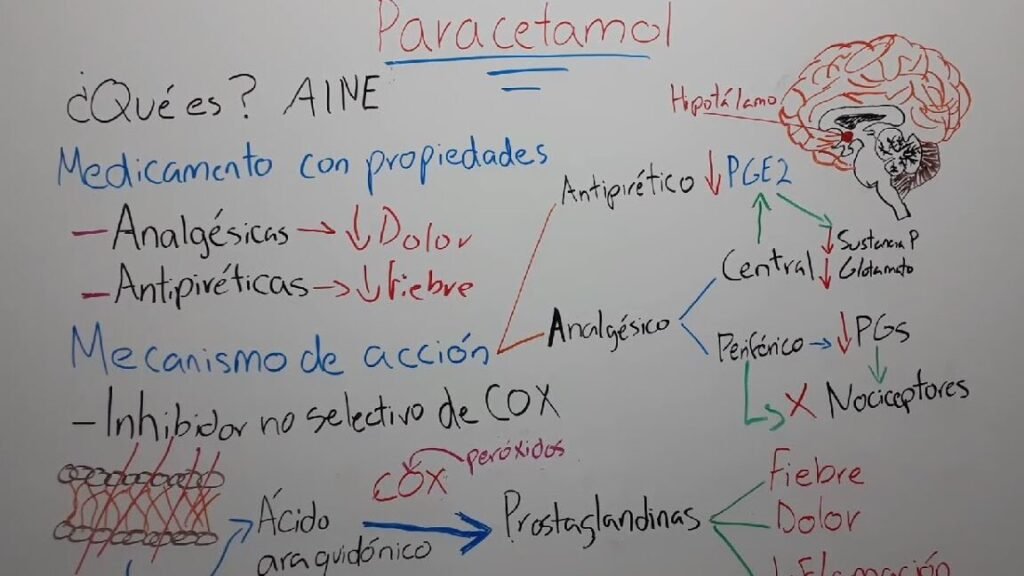 Paracetamol
¿Qué es? AINE
Medicamento con propiedades
- Analgésicas → ↓ Dolor
- Antipiréticas → ↓ Fiebre
Mecanismo de acción
- Inhibidor no selectivo de COX
Hipotálamo
Antipirético ↓ PGE2
Analgésico
Central
↓ Sustancia P
↓ Glutamato
Periférico → ↓ PGs
X Nociceptores
Ácido
araquidónico
COX
peróxidos
Prostaglandinas
Fiebre
Dolor